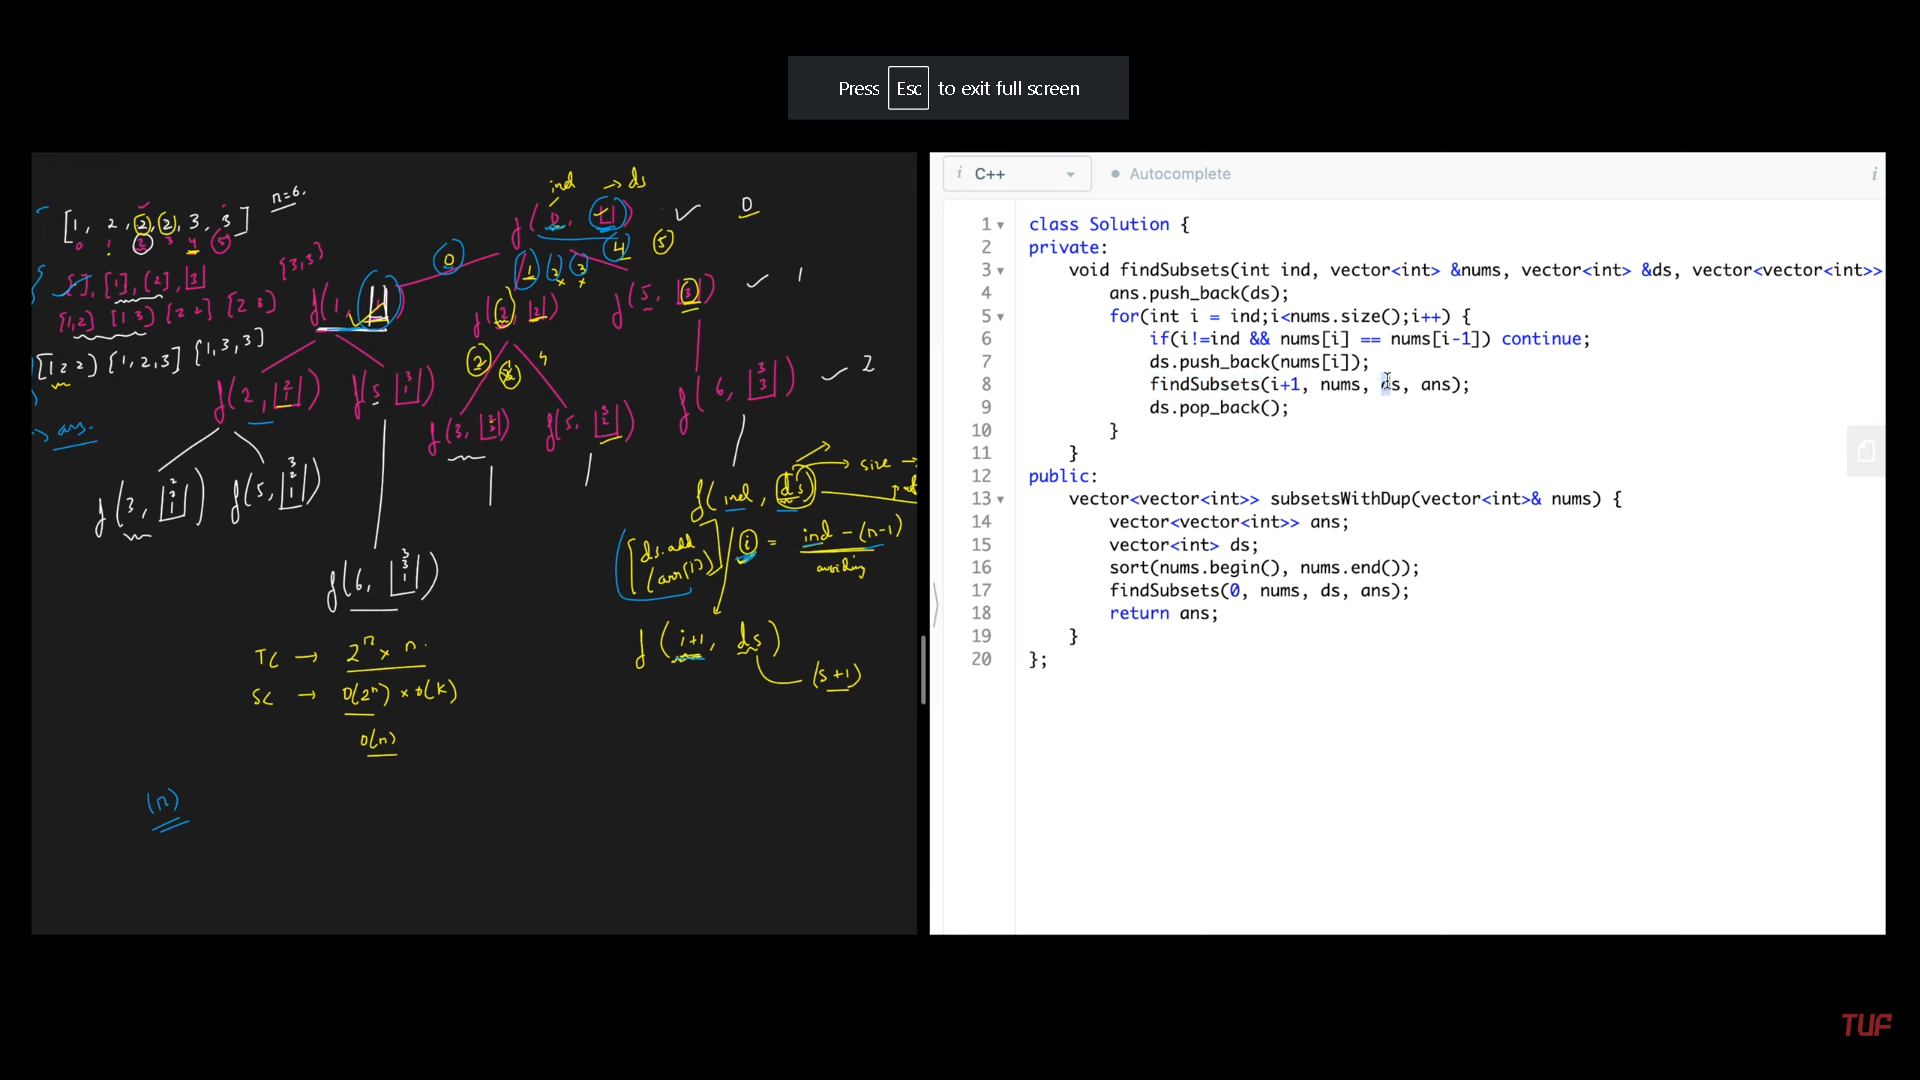 Press Esc to exit full screen
ind → ds
[1, 2, 2, 2, 3, 3] n=6.
0 1 2 3 4 5
f(0, ) 0
0 1 2 3 4 5
[ ], [1], [2], [3] [3,3]
[1,2] [1 3] [2 2] [2 3]
[1 2 2] [1,2,3] [1,3,3]
f(1, 1) f(2, 2) f(5, 3) 1
2 3 4
f(2, 2 1) f(5 3 1) f(3, 2 2) f(5, 3 2) f(6, 3 3) 2
→ ans.
f(3, 2 2 1) f(5, 3 2 1)
f(6, 3 3 1)
f(ind, ds) → size →
[ds.add (arr[i])] i = ind - (n-1)
avoiding
f(i+1, ds)
(s+1)
TC → 2^n × n.
SC → O(2^n) × O(k)
O(n)
(n)
i C++ Autocomplete i
1 class Solution {
2 private:
3 void findSubsets(int ind, vector<int> &nums, vector<int> &ds, vector<vector<int>>
4 ans.push_back(ds);
5 for(int i = ind;i<nums.size();i++) {
6 if(i!=ind && nums[i] == nums[i-1]) continue;
7 ds.push_back(nums[i]);
8 findSubsets(i+1, nums, ds, ans);
9 ds.pop_back();
10 }
11 }
12 public:
13 vector<vector<int>> subsetsWithDup(vector<int>& nums) {
14 vector<vector<int>> ans;
15 vector<int> ds;
16 sort(nums.begin(), nums.end());
17 findSubsets(0, nums, ds, ans);
18 return ans;
19 }
20 };
TUF